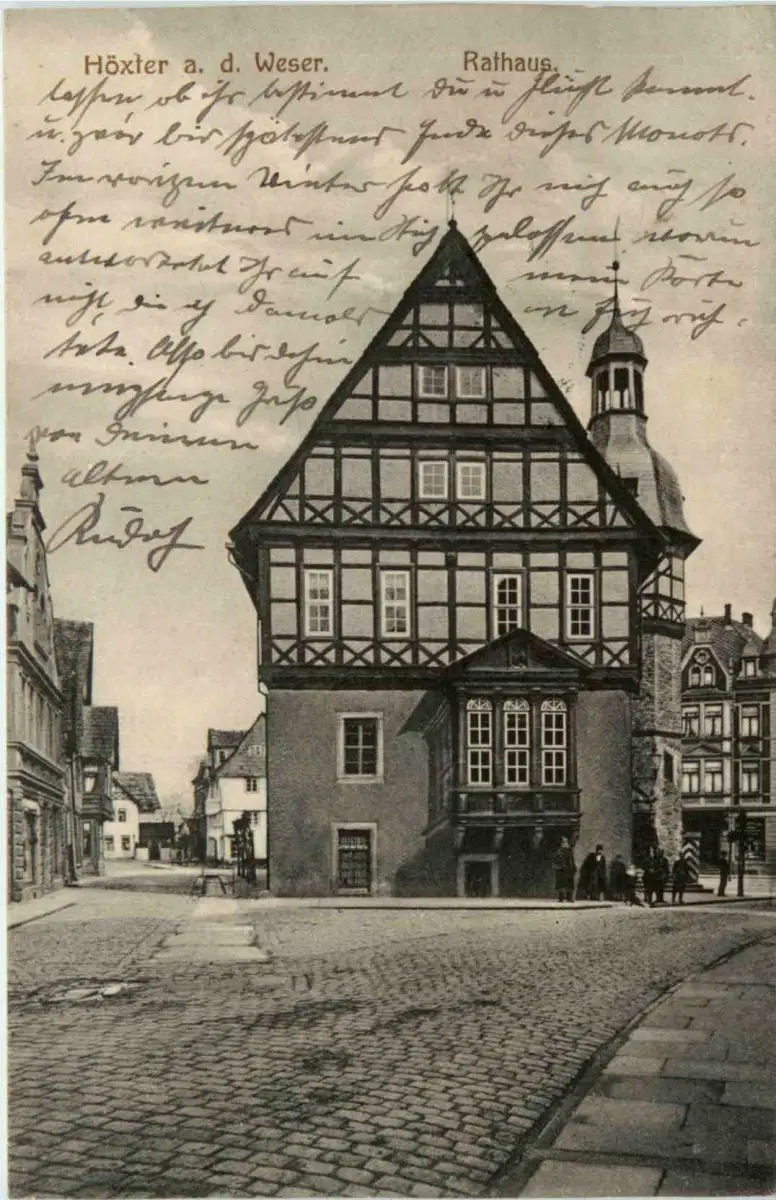 Höxter a. d. Weser. Rathaus.
lassen ob ihr bestimmt du u kommt.
u. zwar bis spätestens Ende dieses Monats.
Im vorigen Winter habt Ihr mich auch so
ohne weiteres im Stich gelassen warum
antwortetet Ihr auf meine Karte
nicht, die ich damals an Euch rich-
tete. Also bis dahin
von Deinem
alten
Rudolf